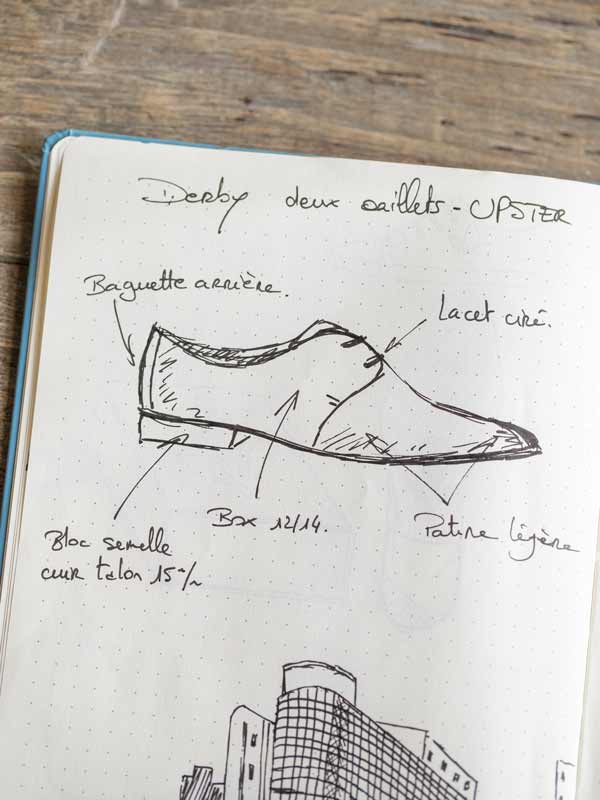 Derby deux œillets - UPSTER
Baguette arrière.
Lacet ciré.
Box 12/14.
Patine légère
Bloc semelle
cuir talon 15